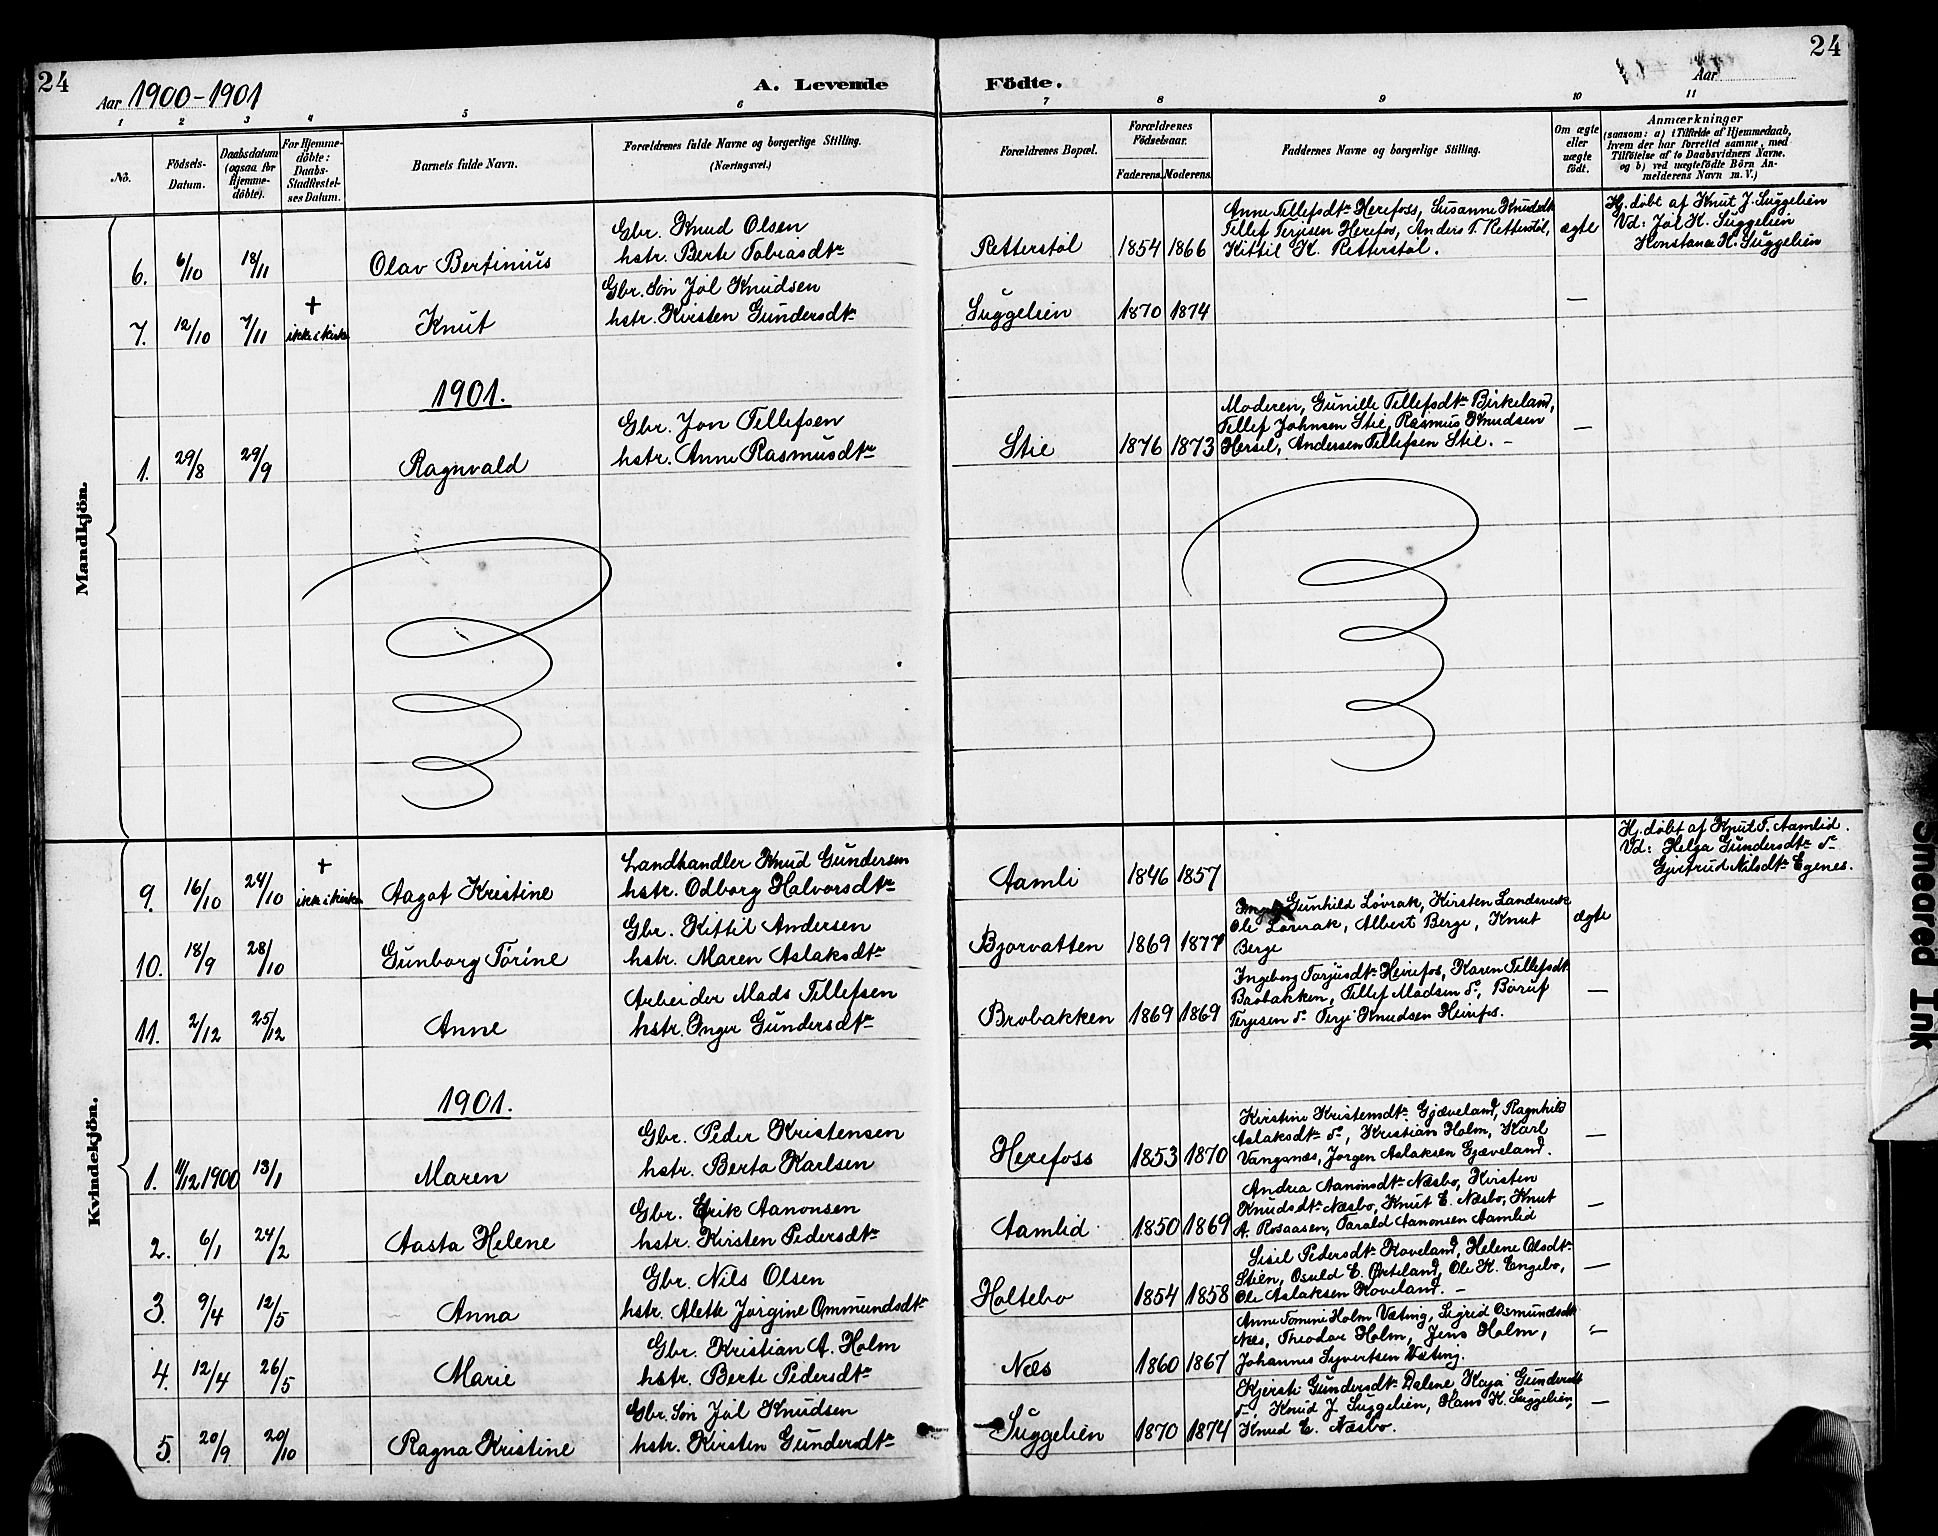 24
Aar 1900-1901
A. Levende Födte.
Aar
24
1 2 3 4 5 6 7 8 9 10 11
No.
Födsels-Datum.
Daabsdatum (ogsaa for Hjemme-döbte).
For Hjemme-döbte: Daabs-Stadfæstel-ses Datum.
Barnets fulde Navn.
Forældrenes fulde Navne og borgerlige Stilling.
(Næringsvei.)
Forældrenes Bopæl.
Forældrenes Födselsaar.
Faderens. Moderens.
Faddernes Navne og borgerlige Stilling.
Om ægte eller uægte födt.
Anmærkninger
(saasom: a) i Tilfælde af Hjemmedaab,
hvem der har forrettet samme, med
Tilföielse af to Daabsvidners Navne.
og b) ved uægtefödte Börn An-
melderens Navn m. V.)
Mandkjön.
6. 6/10 18/11 Olav Bertinius
Gbr. Knud Olsen
hstr. Berte Tobiasdtr
Retterstøl 1854 1866
Anne Tellefsdtr Herefoss, Susanne Knudsdtr
Tellef Terjesen Herefos, Anders T. Retterstøl,
Kittil K. Retterstøl.
ægte
Hj. døbt af Knut J. Suggelien
Vd: Jøl K. Suggelien
Konstance K. Suggelien
7. 12/10 7/11 + ikke i kirke Knut
Gbr. Søn Jøl Knudsen
hstr. Kirsten Gundersdtr
Suggelien 1870 1874 —
1901.
1. 29/8 29/9 Ragnvald
Gbr. Jon Tellefsen
hstr. Anne Rasmusdtr
Stie 1876 1873
Moderen, Gunille Tellefsdtr Birkeland,
Tellef Johnsen Stie, Rasmus Knudsen
Hersel, Andersen Tellefsen Stie. —
—
Kvindekjön.
9. 16/10 24/10 + ikke i kirke Aagot Kristine
Landhandler Knud Gundersen
hstr. Odborg Halvorsdtr
Aamli 1846 1857
Hj. døbt af Knut T. Aamlid.
Vd: Helga Gundersdtr do
Gjertrud Nilsdtr Egenes.
10. 18/9 28/10 Gunborg Torine
Gbr. Kittil Andersen
hstr. Maren Aslaksdtr
Bjorvatten 1869 1877
Gunhild Lovrak, Kirsten Landsverk
Ole Lovrak, Albert Berge, Knut
Berge
ægte
11. 2/12 25/12 Anne
Arbeider Mads Tellefsen
hstr. Inger Gundersdtr
Brobakken 1869 1869
Ingeborg Tarjusdtr Heirefos, Karen Tellefsdtr
Brobakken, Tellef Madsen do, Børuf
Terjesen do Terje Knudsen Heirefos.
—
1901.
1. 11/12 1900 13/1 Maren
Gbr. Peder Kristensen
hstr. Berta Karlsen
Herefoss 1853 1870
Kirstine Kristensdtr Gjæveland, Ragnhild
Aslaksdtr do, Kristian Holm, Karl
Vangsnæs, Jorgen Aslaksen Gjæveland.
—
2. 6/1 24/2 Aasta Helene
Gbr. Erik Aanonsen
hstr. Kirsten Pedersdtr
Aamlid 1850 1869
Andrea Aanonsdtr Næsbo, Kirsten
Knudsdtr Næsbo, Knut E. Næsbo, Knut
A. Rosaasen, Tarald Aanonsen Aamlid
—
3. 9/4 12/5 Anna
Gbr. Nils Olsen
hstr. Alette Jørgine Ommundsdtr
Holtebo 1854 1858
Sisil Pedersdtr Roveland, Helene Olsdtr
Stien, Osuld E. Ørteland, Ole K. Engebo,
Ole Aslaksen Roveland. —
—
4. 12/4 26/5 Marie
Gbr. Kristian A. Holm
hstr. Berte Pedersdtr
Næs 1860 1867
Anne Tomine Holm Væting, Sigrid Osmundsdtr
Næs, Theodor Holm, Jens Holm,
Johannes Syvertsen Væting.
—
5. 20/9 20/10 Ragna Kristine
Gbr. Søn Jøl Knudsen
hstr. Kirsten Gundersdtr
Suggelien 1870 1874
Kjersti Gundersdtr Dalene, Kaja Gundersdtr
do, Knud J. Suggelien, Hans K. Suggelien,
Knud E. Næsbo.
—
Smeared Ink